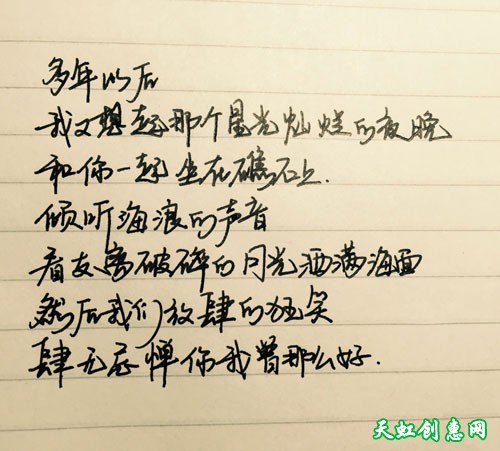 多年以后
我又想起那个星光灿烂的夜晚
和你一起坐在礁石上.
倾听海浪的声音
看支离破碎的月光洒满海面
然后我们放肆的狂笑
肆无忌惮你我曾那么好.
天虹创惠网